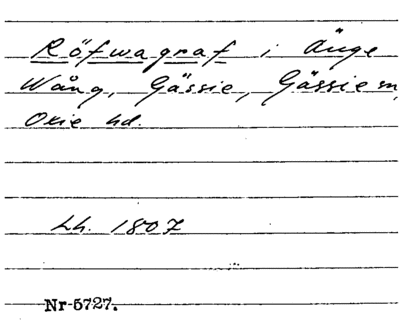 Röfwagraf i Änge
Wång, Gässie, Gässie sn,
Oxie hd.
Lh. 1807
Nr 5727.